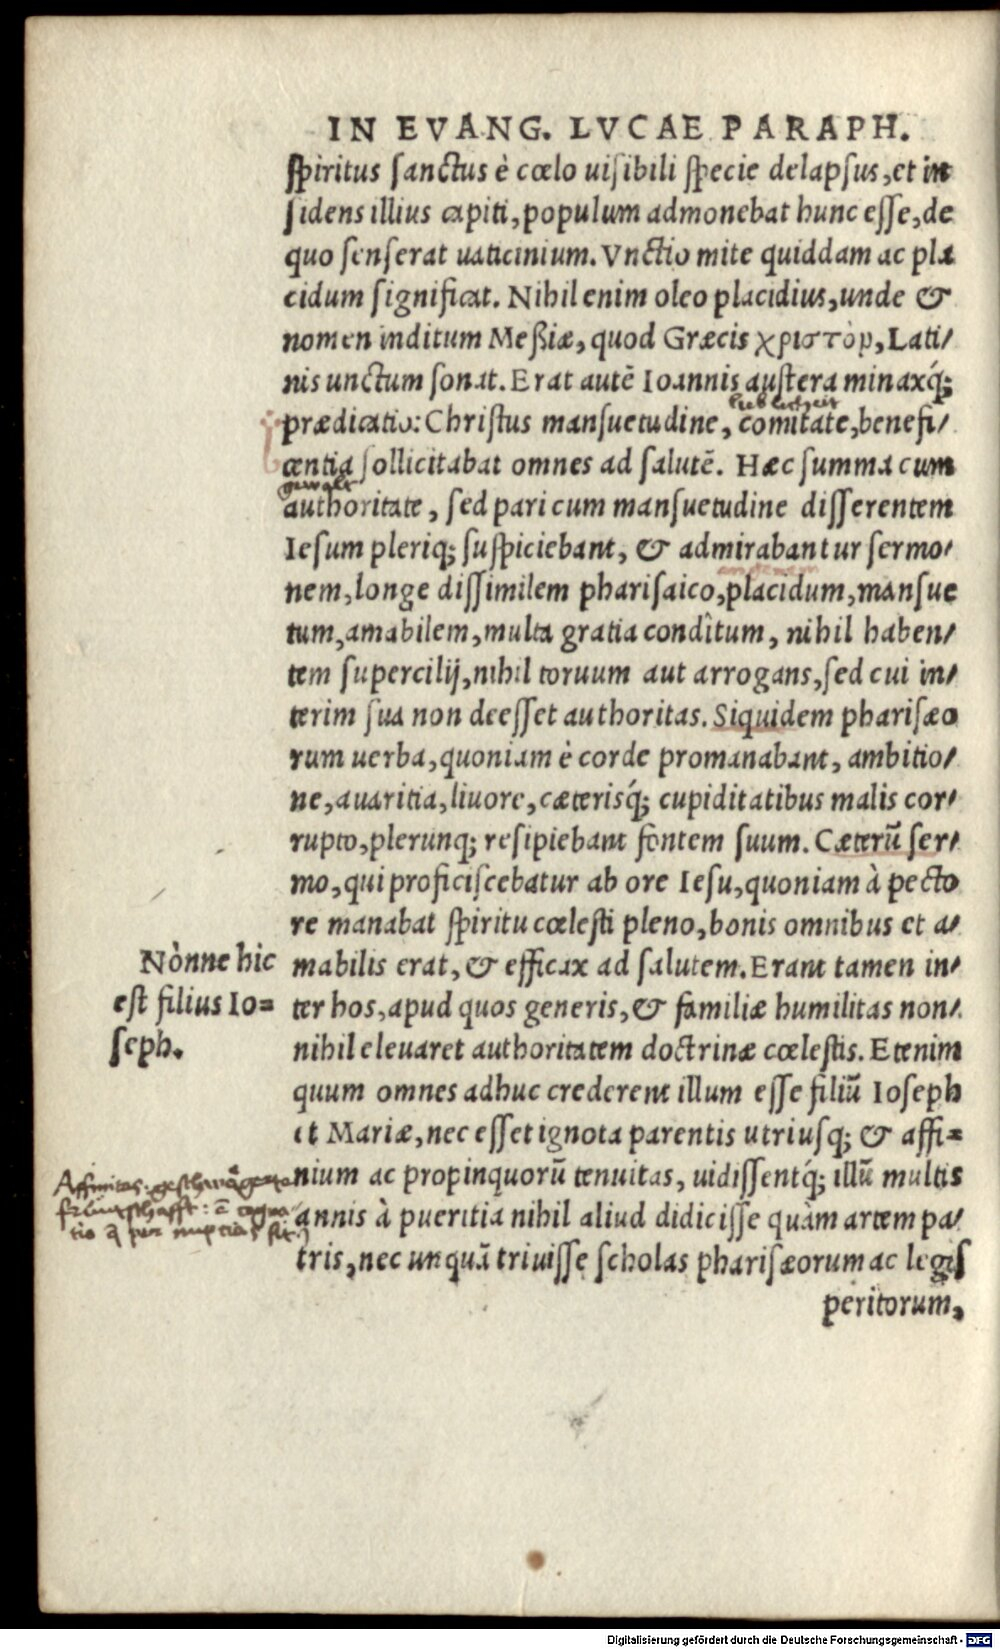 IN EVANG. LVCAE PARAPH.
spiritus sanctus è cœlo uisibili specie delapsus, et in
sidens illius capiti, populum admonebat hunc esse, de
quo senserat uaticinium. Vnctio mite quiddam ac pla
cidum significat. Nihil enim oleo placidius, unde &
nomen inditum Meßiæ, quod Græcis χριστὸν, Lati/
nis unctum sonat. Erat autē Ioannis austera minaxq́;
prædicatio: Christus mansuetudine, comitate, benefi/
centia sollicitabat omnes ad salutē. Hæc summa cum
gewalt
authoritate, sed pari cum mansuetudine disserentem
Iesum pleriq; suspiciebant, & admirabantur sermo/
nem, longe dissimilem pharisaico, placidum, mansue
tum, amabilem, multa gratia condîtum, nihil haben/
tem supercilij, nihil toruum aut arrogans, sed cui in/
terim sua non deesset authoritas. Siquidem pharisæo
rum uerba, quoniam è corde promanabant, ambitio/
ne, auaritia, liuore, cæterisq́; cupiditatibus malis cor/
rupto, plerunq; resipiebant fontem suum. Cæterū ser/
mo, qui proficiscebatur ab ore Iesu, quoniam à pecto
re manabat spiritu cœlesti pleno, bonis omnibus et a/
mabilis erat, & efficax ad salutem. Erant tamen in/
ter hos, apud quos generis, & familiæ humilitas non/
nihil eleuaret authoritatem doctrinæ cœlestis. Etenim
quum omnes adhuc crederent illum esse filiū Ioseph
et Mariæ, nec esset ignota parentis utriusq; & affi=
nium ac propinquorū tenuitas, uidissentq́; illū multis
annis à pueritia nihil aliud didicisse quàm artem pa/
tris, nec unquā triuisse scholas pharisæorum ac legis
peritorum,
Nònne hic
est filius Io=
seph.
Affinitas:
Digitalisierung gefördert durch die Deutsche Forschungsgemeinschaft - DFG